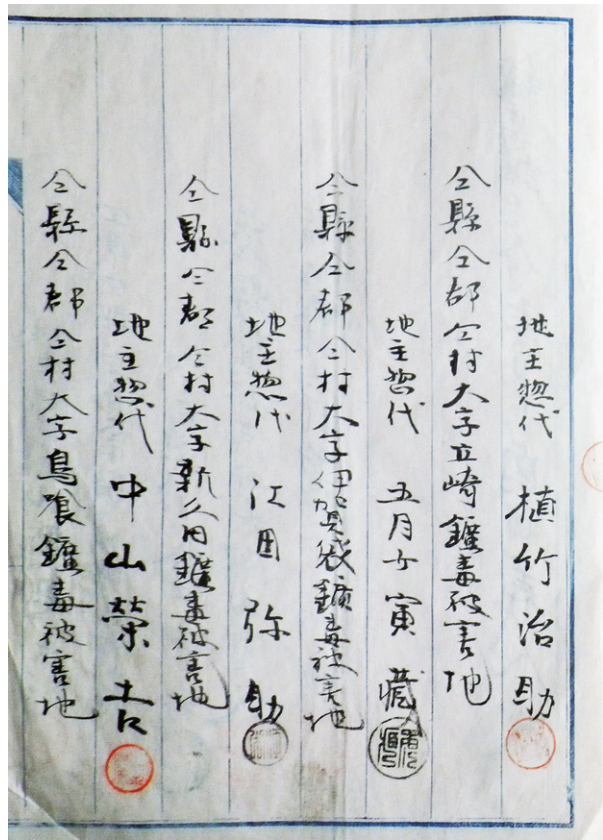 地主惣代 植竹治助
仝縣仝郡仝村大字立崎鑛毒被害地
地主惣代 五月女寅蔵
仝縣仝郡仝村大字伊賀袋鑛毒被害地
地主惣代 江田弥助
仝縣仝郡仝村大字新久田鑛毒被害地
地主惣代 中山榮吉
仝縣仝郡仝村大字鳥喰鑛毒被害地